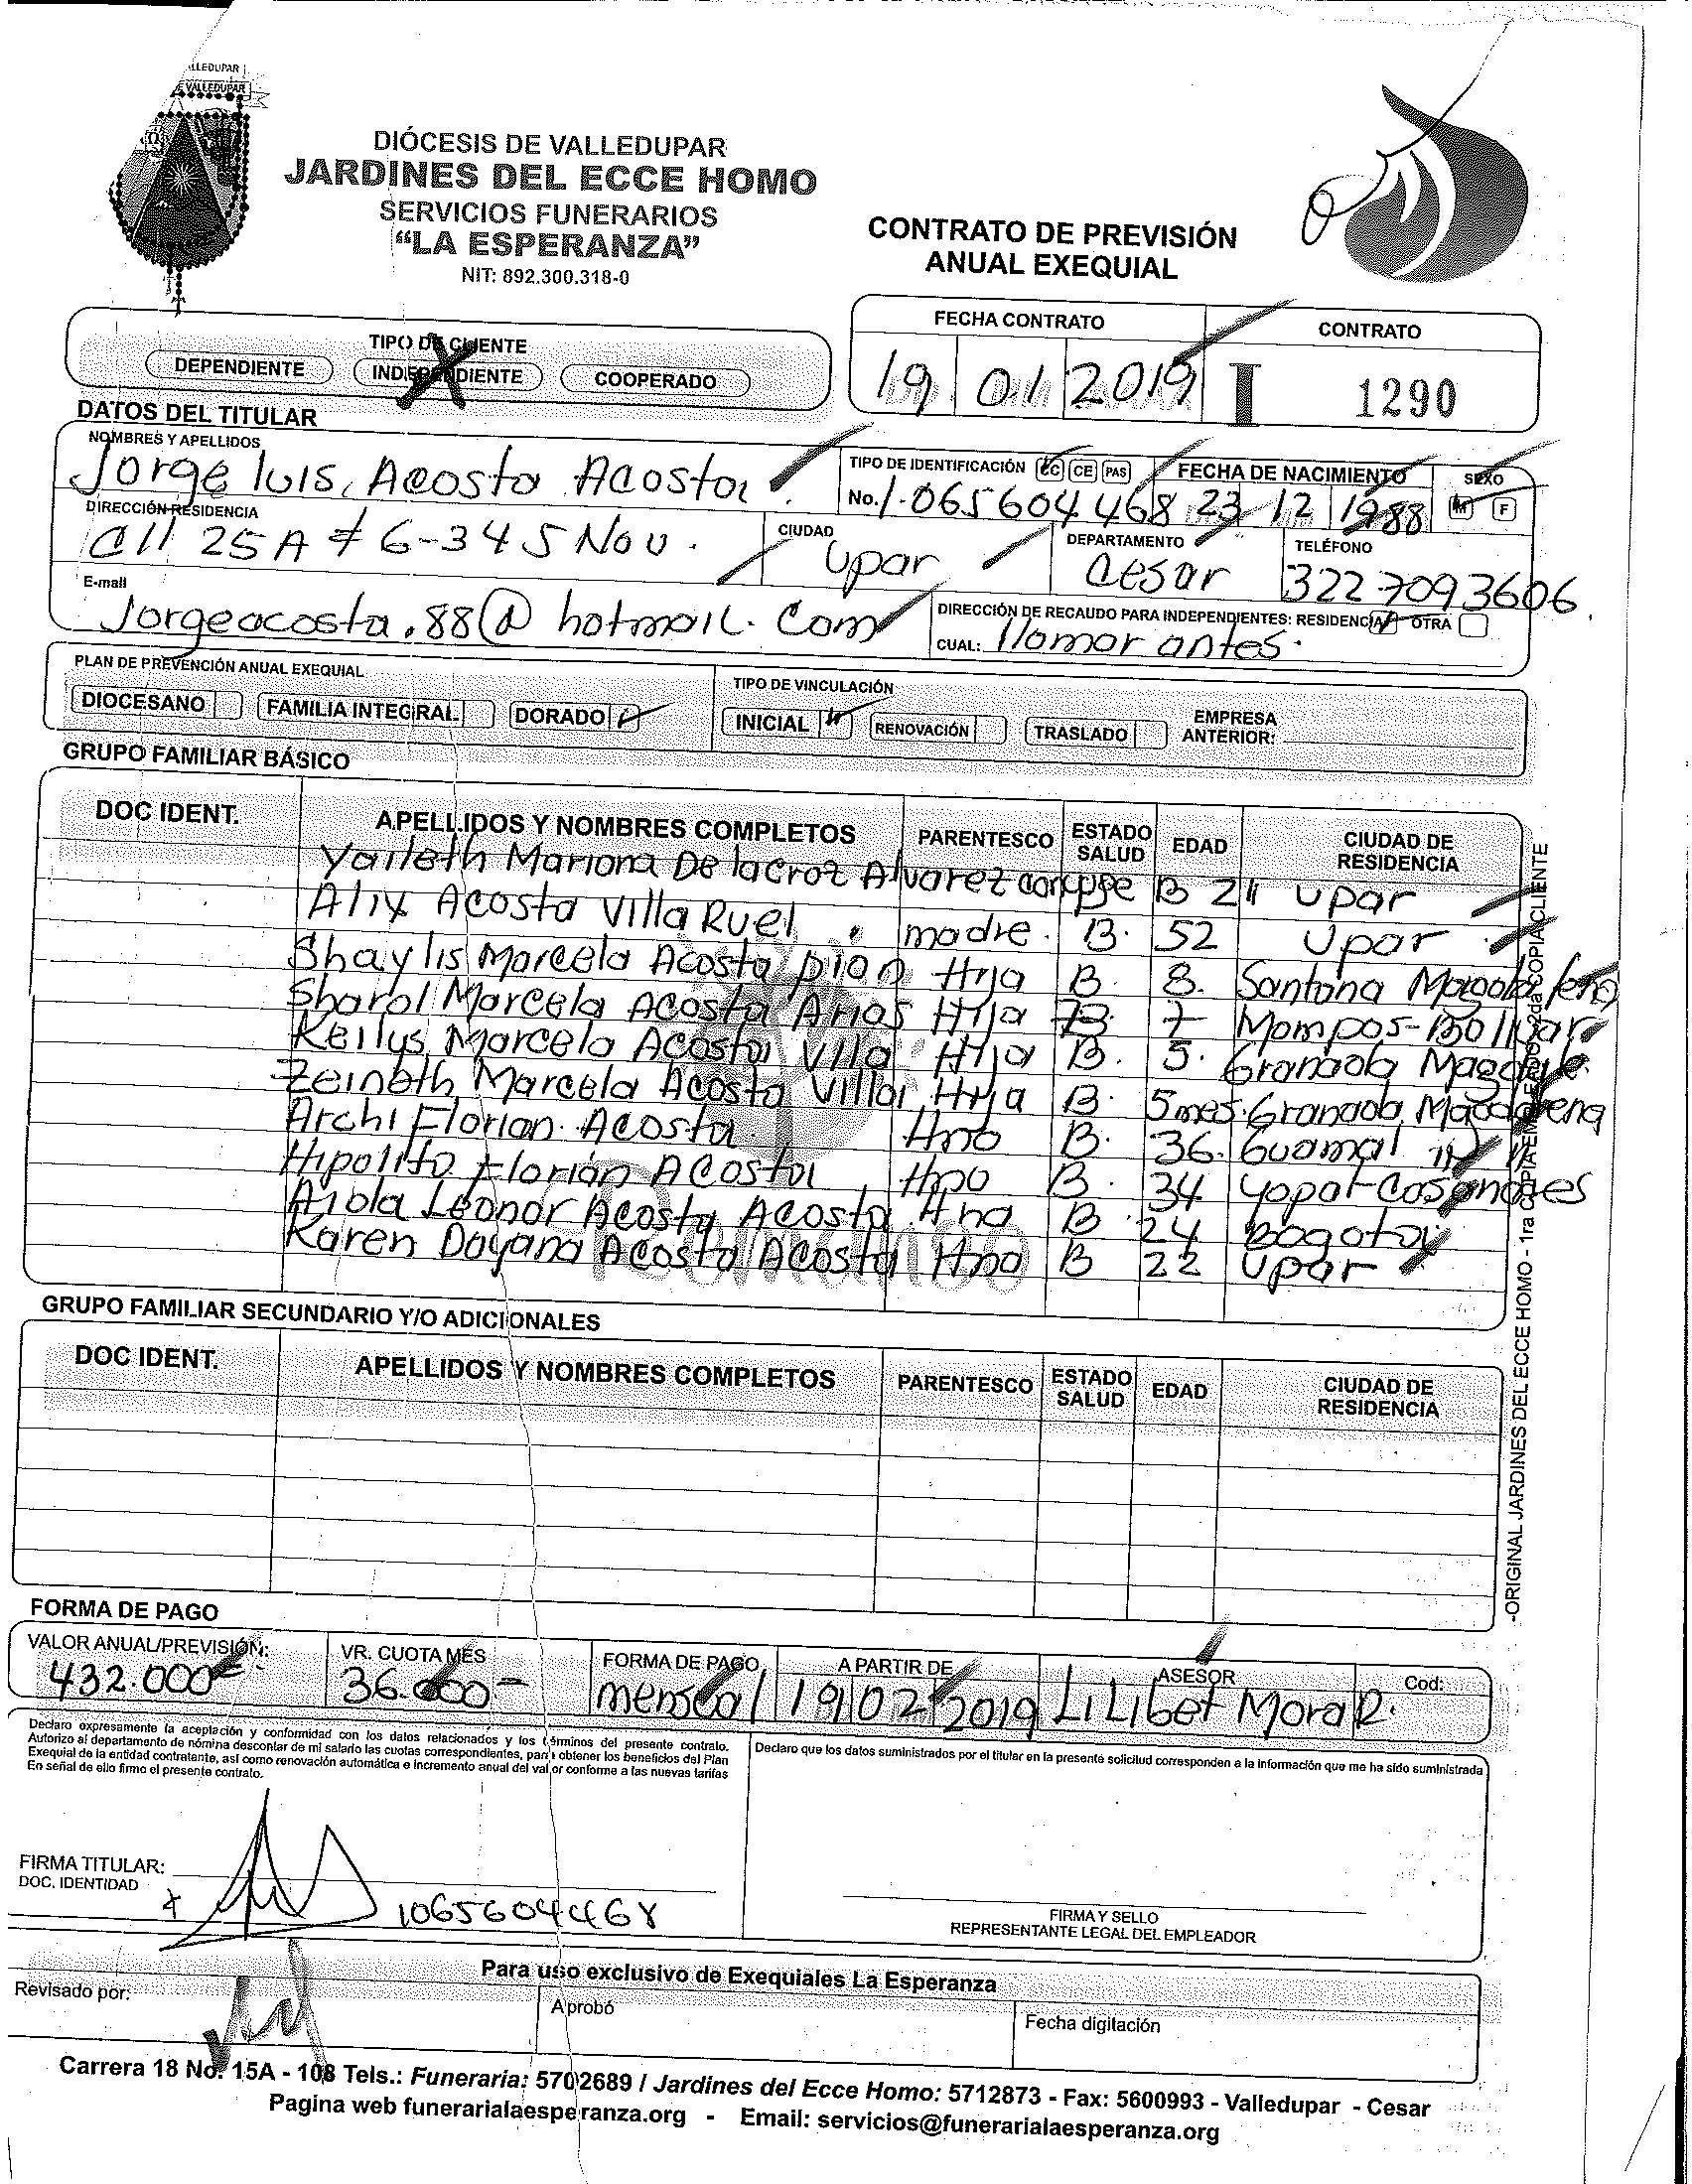 LLEDUPAR
VALLEDUPAR
DIÓCESIS DE VALLEDUPAR
JARDINES DEL ECCE HOMO
SERVICIOS FUNERARIOS
"LA ESPERANZA"
NIT: 892.300.318-0
CONTRATO DE PREVISIÓN
ANUAL EXEQUIAL
TIPO DE CLIENTE
DEPENDIENTE INDEPENDIENTE COOPERADO
FECHA CONTRATO CONTRATO
19 01 2019 I 1290
DATOS DEL TITULAR
NOMBRES Y APELLIDOS
Jorge luis Acosta Acosta
TIPO DE IDENTIFICACIÓN CC CE PAS FECHA DE NACIMIENTO SEXO
No. 1.065604468 23 12 1988 M F
DIRECCIÓN RESIDENCIA
Cll 25A # 6-34 5 Nov.
CIUDAD
Upar
DEPARTAMENTO
Cesar
TELÉFONO
322 7093606.
E-mail
Jorgeacosta.88@hotmail.com
DIRECCIÓN DE RECAUDO PARA INDEPENDIENTES: RESIDENCIA OTRA
CUAL: llamar antes.
PLAN DE PREVENCIÓN ANUAL EXEQUIAL
DIOCESANO FAMILIA INTEGRAL DORADO
TIPO DE VINCULACIÓN
INICIAL RENOVACIÓN TRASLADO EMPRESA ANTERIOR:
GRUPO FAMILIAR BÁSICO
DOC IDENT. APELLIDOS Y NOMBRES COMPLETOS PARENTESCO ESTADO SALUD EDAD CIUDAD DE RESIDENCIA
Yaileth Mariana De la Croz Alvarez B Upar
Alix Acosta Villa Ruel madre. B. 52 Upar
Shaylis Marcela Acosta pion Hija B. 8. Santana
Sharol Marcela Acosta Arias Hija 7 Mompos-Bolivar
Keilys Marcela Acosta Villa Hija B. 5. Granada
Zeinath Marcela Acosta Villa Hija B. 5 mes. Granada Magdalena
Archi Florian Acosta Hno B. 36. Guamal
Hipolito Florián Acosta Hno B. 34 Yopal-Casanares
Leonor Acosta Acosta Hna B 24 Bogota
Karen Dayana Acosta Acosta Hna B 22 Upar
GRUPO FAMILIAR SECUNDARIO Y/O ADICIONALES
DOC IDENT. APELLIDOS Y NOMBRES COMPLETOS PARENTESCO ESTADO SALUD EDAD CIUDAD DE RESIDENCIA
FORMA DE PAGO
VALOR ANUAL/PREVISIÓN: VR. CUOTA MES FORMA DE PAGO A PARTIR DE ASESOR Cod:
432.000 36.000 mensual 19 02 2019 Lilibet Mora R.
Declaro expresamente la aceptación y conformidad con los datos relacionados y los términos del presente contrato.
Autorizo al departamento de nómina descontar de mi salario las cuotas correspondientes, para obtener los beneficios del Plan
Exequial de la entidad contratante, así como renovación automática e incremento anual del valor conforme a las nuevas tarifas
En señal de ello firmo el presente contrato.
Declaro que los datos suministrados por el titular en la presente solicitud corresponden a la información que me ha sido suministrada
FIRMA TITULAR:
DOC. IDENTIDAD
1065604468
FIRMA Y SELLO
REPRESENTANTE LEGAL DEL EMPLEADOR
Para uso exclusivo de Exequiales La Esperanza
Revisado por: Aprobó Fecha digitación
Carrera 18 No. 15A - 108 Tels.: Funeraria: 5702689 / Jardines del Ecce Homo: 5712873 - Fax: 5600993 - Valledupar - Cesar
Pagina web funerarialaesperanza.org - Email: servicios@funerarialaesperanza.org
-ORIGINAL JARDINES DEL ECCE HOMO - 1ra COPIA COPIA CLIENTE